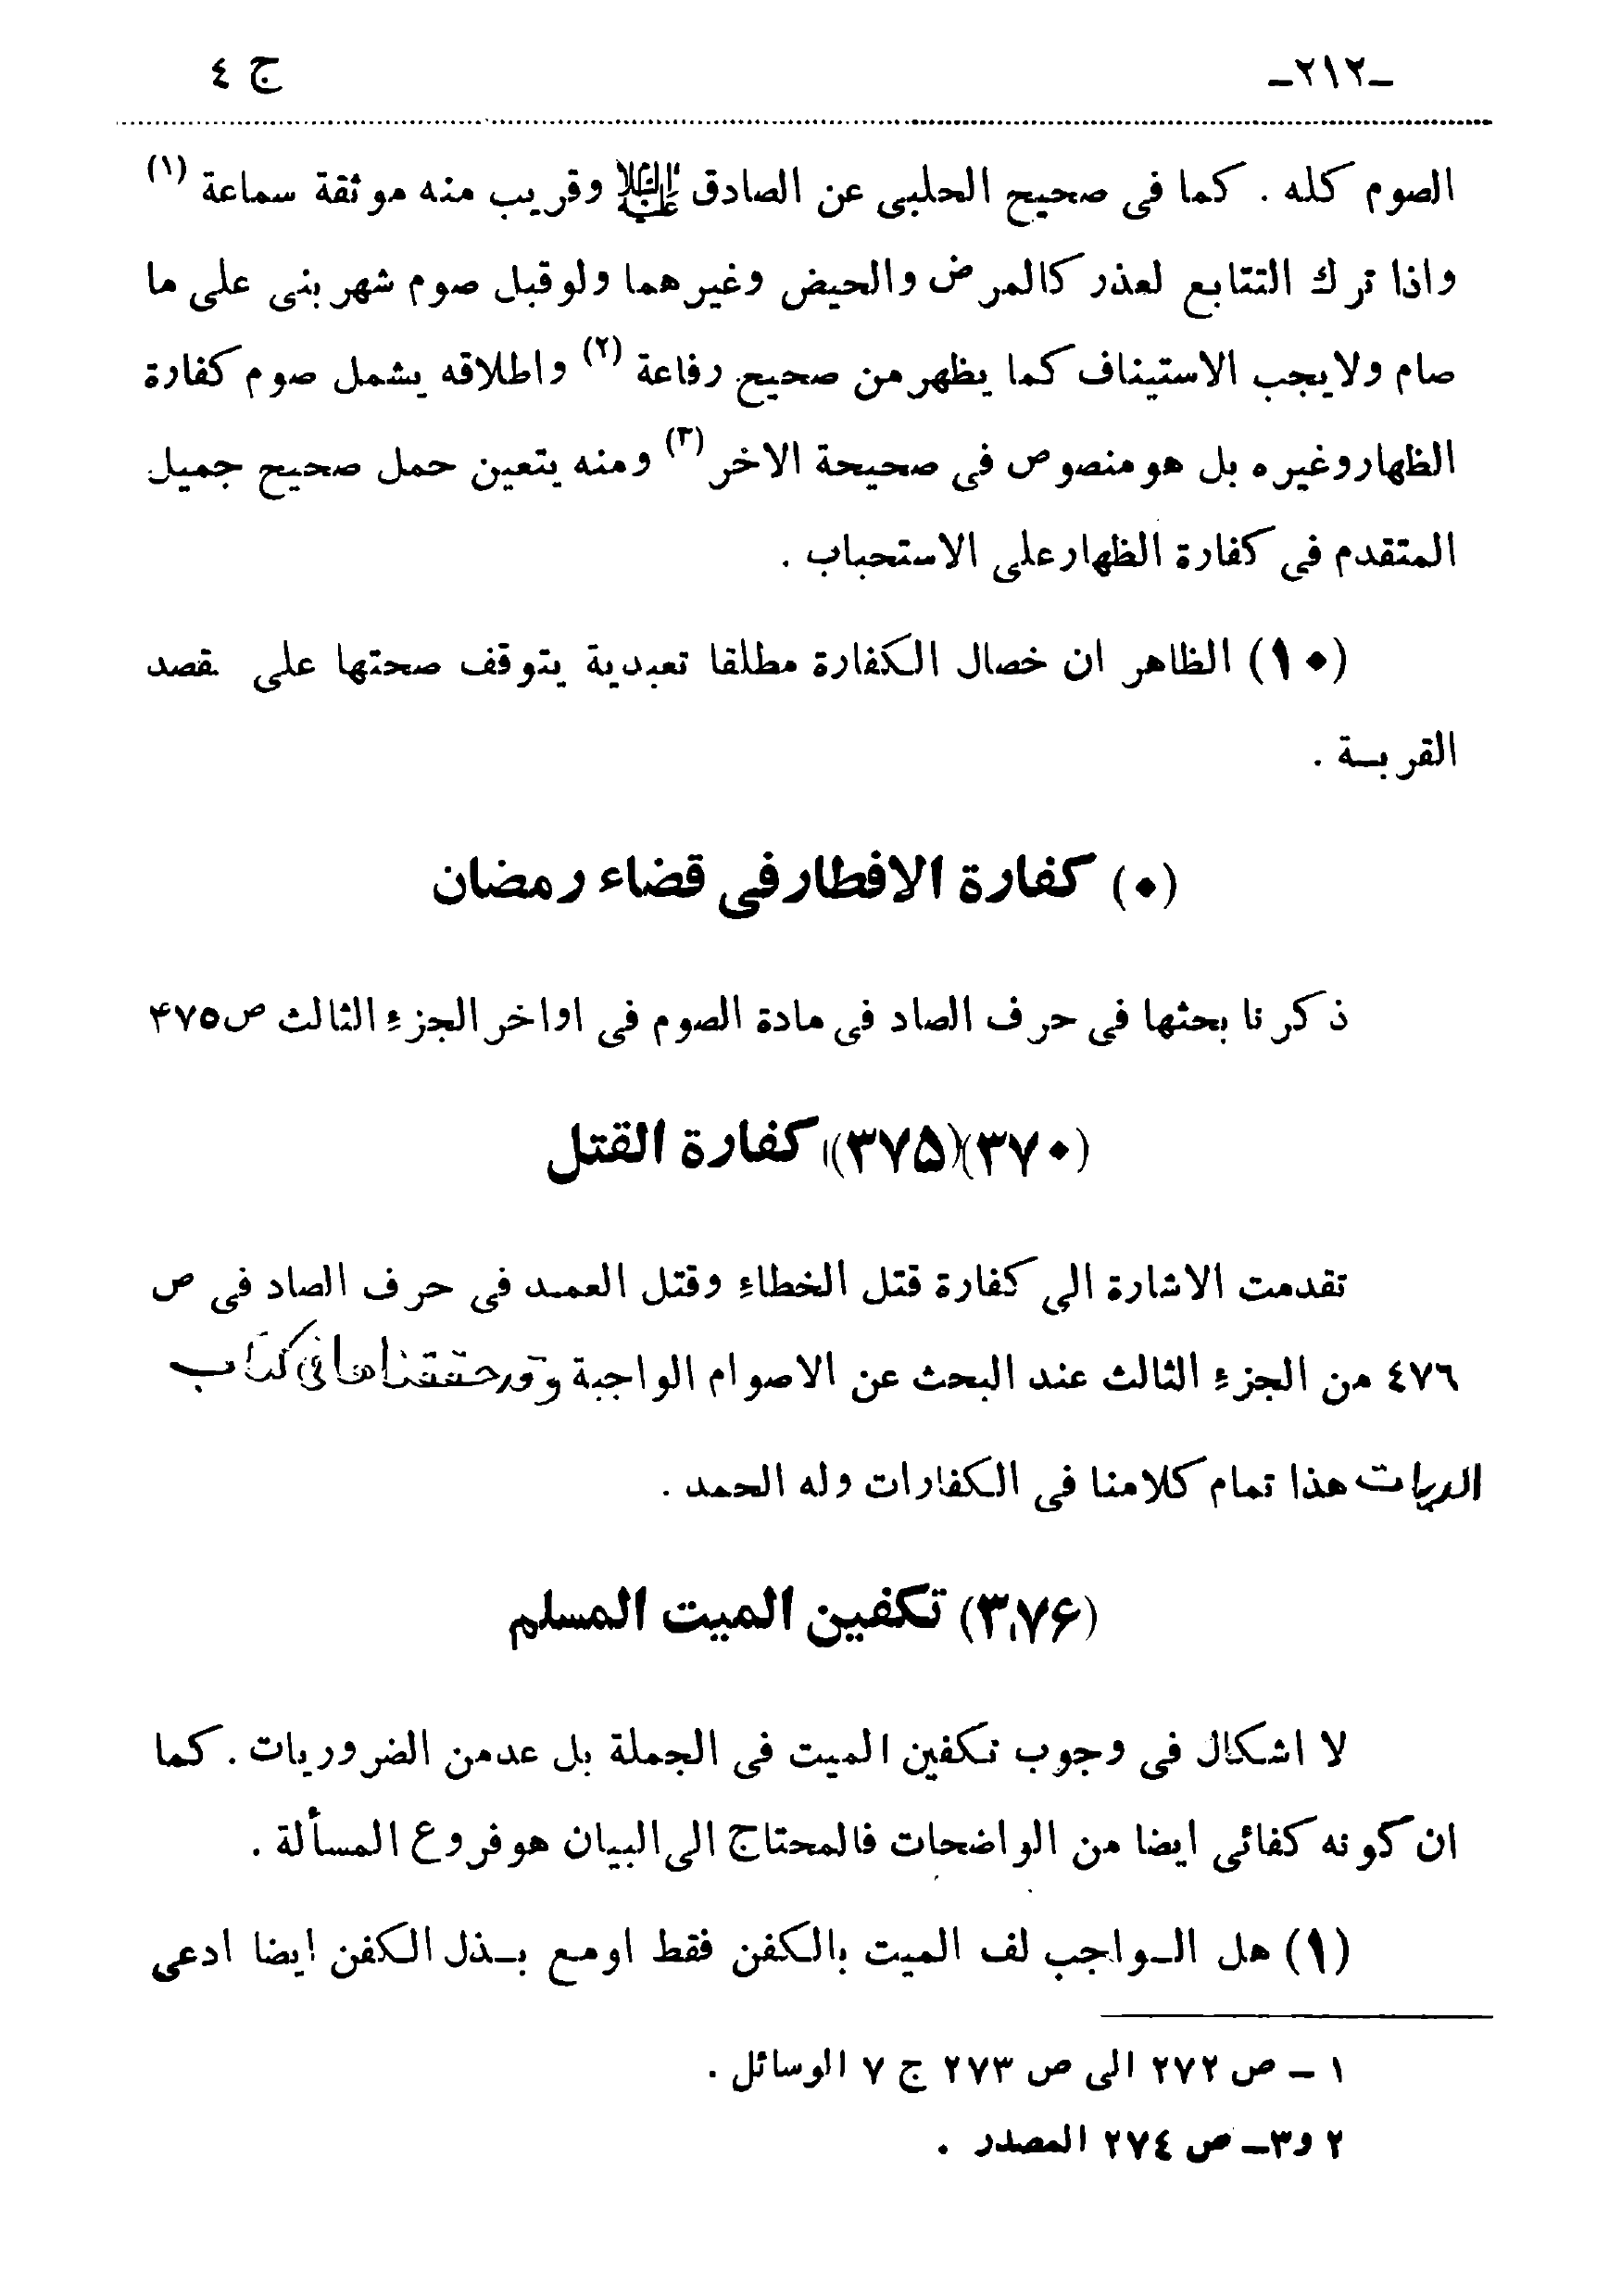 -٢١٢- ج ٤
الصوم كله . كما فى صحيح الحلبى عن الصادق عليه السلام وقريب منه موثقة سماعة (١)
واذا ترك التتابع لعذر كالمرض والحيض وغيرهما ولو قبل صوم شهر بنى على ما
صام ولا يجب الاستيناف كما يظهر من صحيح رفاعة (٢) واطلاقه يشمل صوم كفارة
الظهار وغيره بل هو منصوص فى صحيحة الاخر (٣) ومنه يتعين حمل صحيح جميل
المتقدم فى كفارة الظهار على الاستحباب .
(١٠) الظاهر ان خصال الكفارة مطلقا تعبدية يتوقف صحتها على قصد
القربة .
(٠) كفارة الافطار فى قضاء رمضان
ذكرنا بحثها فى حرف الصاد فى مادة الصوم فى اواخر الجزء الثالث ص ۴٧۵
(٣٧٠)(٣٧۵) كفارة القتل
تقدمت الاشارة الى كفارة قتل الخطاء وقتل العمد فى حرف الصاد فى ص
٤٧٦ من الجزء الثالث عند البحث عن الاصوام الواجبة وقد حققناها فى كتاب
الديات هذا تمام كلامنا فى الكفارات وله الحمد .
(٣٧۶) تكفين الميت المسلم
لا اشكال فى وجوب تكفين الميت فى الجملة بل عد من الضروريات . كما
ان كونه كفائى ايضا من الواضحات فالمحتاج الى البيان هو فروع المسألة .
(١) هل الواجب لف الميت بالكفن فقط او مع بذل الكفن ايضا ادعى
١ - ص ٢٧٢ الى ص ٢٧٣ ج ٧ الوسائل .
٢ و٣- ص ٢٧٤ المصدر .